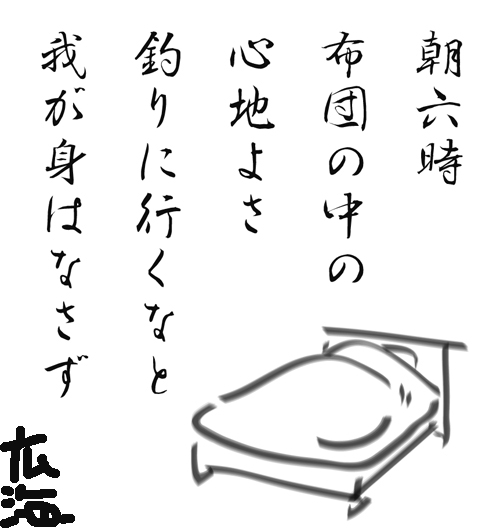 朝六時
布団の中の
心地よさ
釣りに行くなと
我が身はなさず
広海